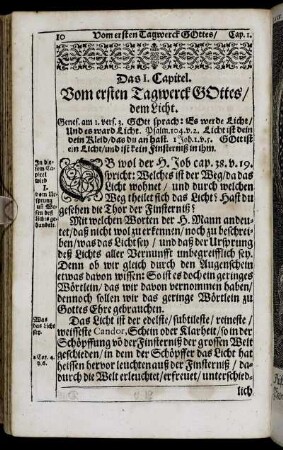 10 Vom ersten Tagwerck GOttes/ Cap. 1.
Das I. Capitel.
Vom ersten Tagwerck GOttes/
dem Licht.
Genes. am 1. vers. 3. GOtt sprach: Es werde Licht/
Und es ward Licht. Psalm. 104. v. 2. Licht ist dein
dein Kleid/das du an hast. 1 Joh. 1. v. 5. GOtt ist
ein Licht/und ist kein Finsterniß in ihm.
In diesem Capitel
wird
OB wol der H. Job cap. 38. v. 19.
spricht: Welches ist der Weg/da das
Licht wohnet/ und durch welchen
Weg theilet sich das Licht? Hast du
gesehen die Thor der Finsterniß?
Mit welchen Worten der H. Mann andeu-
tet/daß nicht wol zu erkennen/noch zu beschrei-
ben/was das Licht sey/ und daß der Ursprung
deß Lichts aller Vernunfft unbegreifflich sey.
Denn ob wir gleich durch den Augenschein
etwas davon wissen/So ist es doch ein geringes
Wörtlein/ das wir davon vernommen haben/
dennoch sollen wir das geringe Wörtlein zu
Gottes Ehre gebrauchen.
Was
das Licht
sey.
Das Licht ist der edelste/ subtileste/ reineste/
weisseste Candor, Schein oder Klarheit/so in der
Schöpffung võ der Finsterniß der grossen Welt
geschieden/in dem der Schöpffer das Licht hat
heissen hervor leuchten auß der Finsterniß/ da-
durch die Welt erleuchtet/erfreuet/ unterschied-
lich